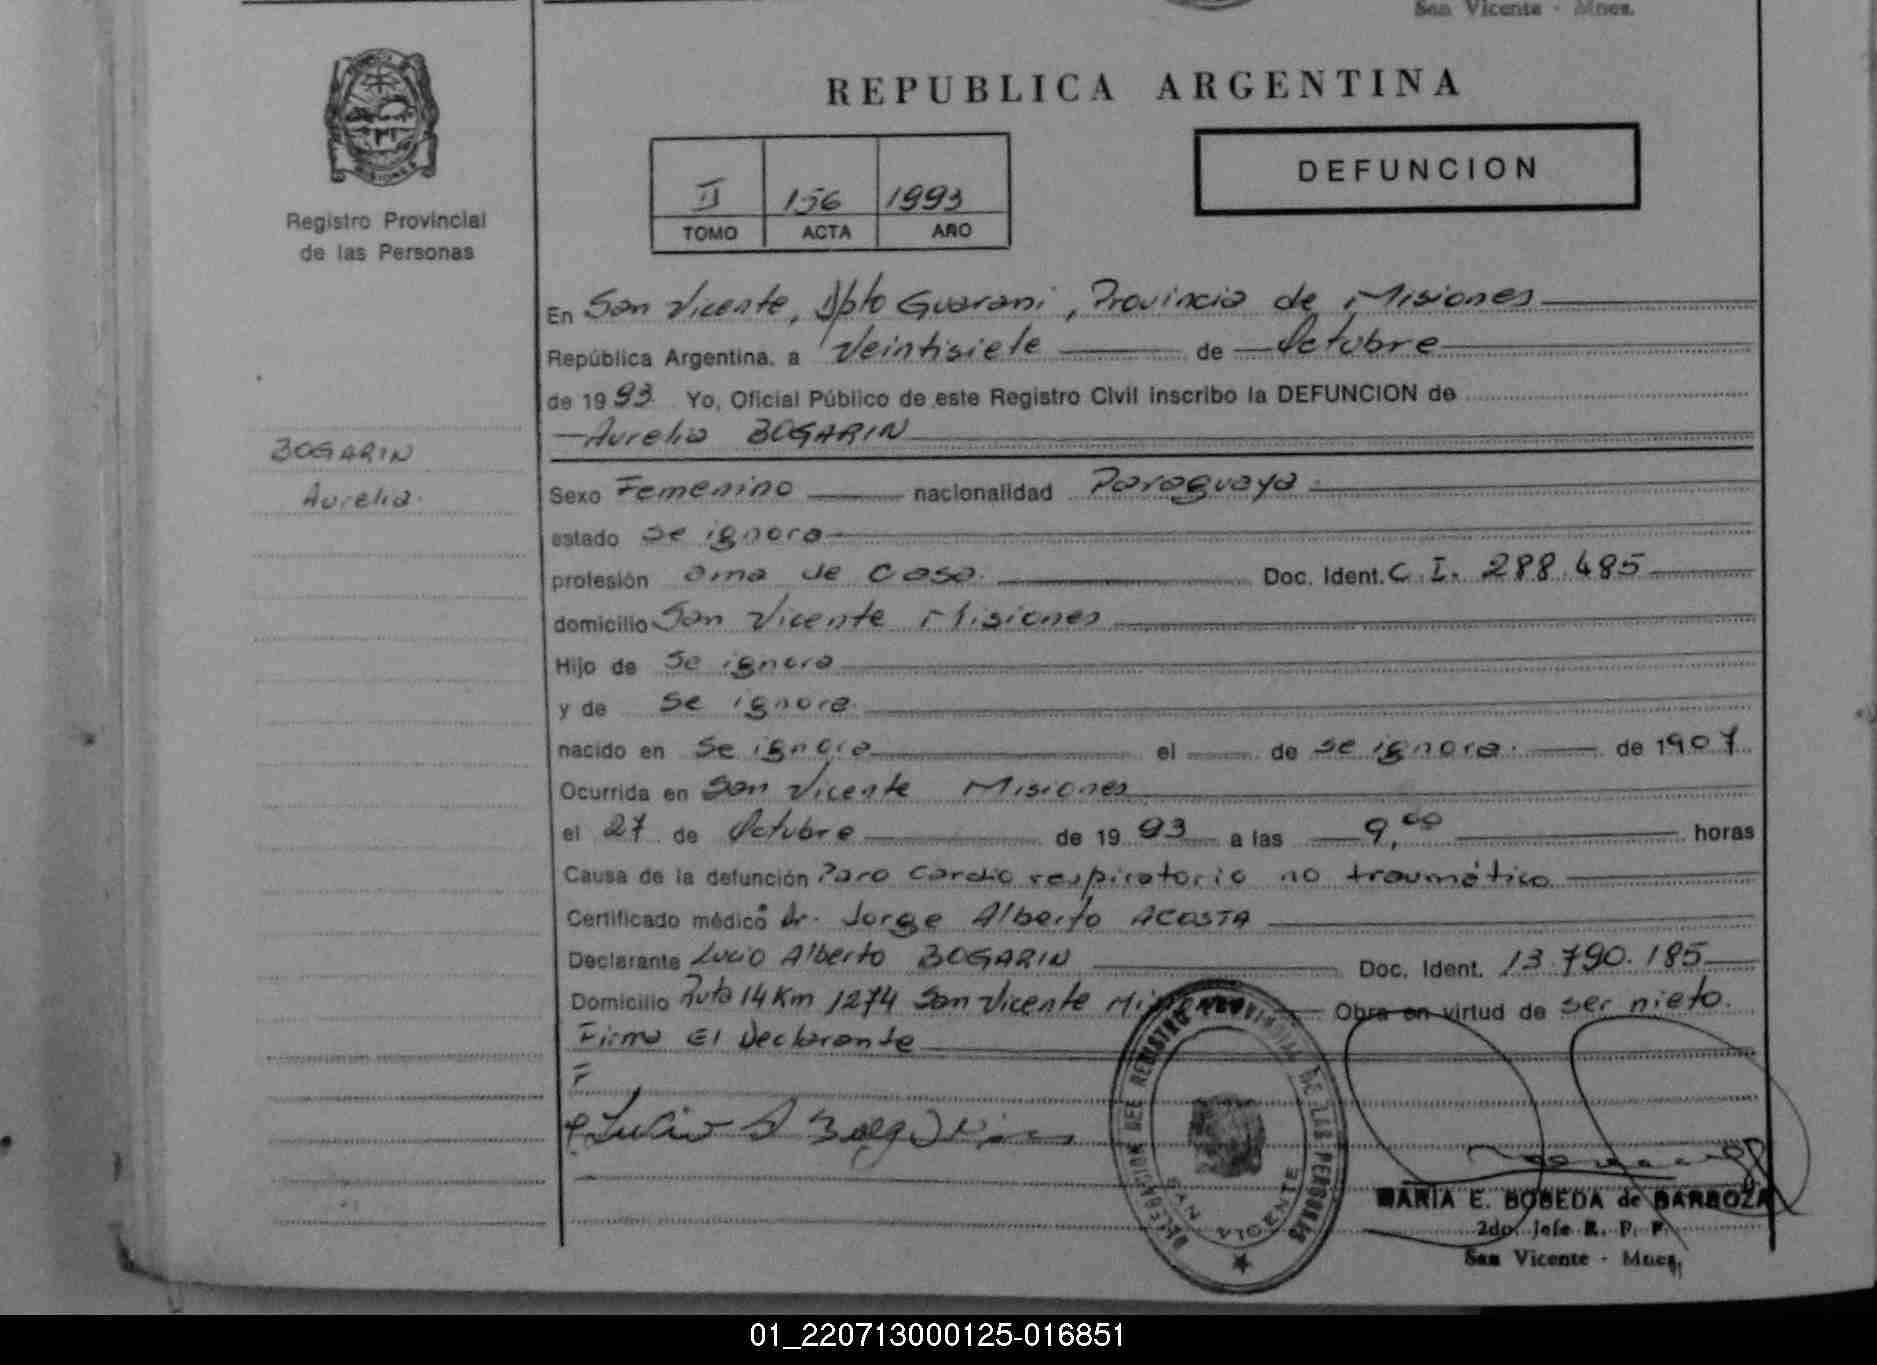 San Vicente - Mnes.
REPUBLICA ARGENTINA
DEFUNCION
II 156 1993
TOMO ACTA AÑO
Registro Provincial
de las Personas
En San Vicente, Dpto Guarani, Provincia de Misiones
República Argentina, a Veintisiete de Octubre
de 1993 Yo, Oficial Público de este Registro Civil inscribo la DEFUNCION de
Aurelia BOGARIN
BOGARIN
Aurelia.
Sexo Femenino nacionalidad Paraguaya
estado se ignora
profesión ama de casa. Doc. Ident. C.I. 288.485
domicilio San Vicente Misiones
Hijo de Se ignora
y de Se ignora
nacido en Se ignora el de se ignora de 1907
Ocurrida en San Vicente Misiones
el 27 de Octubre de 1993 a las 9,00 horas
Causa de la defunción Paro Cardio respiratorio no traumático
Certificado médico Dr. Jorge Alberto ACOSTA
Declarante Lucio Alberto BOGARIN Doc. Ident. 13.790.185
Domicilio Ruta 14 Km 1274 San Vicente Misiones Obra en virtud de ser nieto.
Firma El Declarante
F
Lucio A Bogarin
DELEGACION DEL REGISTRO PROVINCIAL DE LAS PERSONAS
SAN VICENTE
MARIA E. BOBEDA de BARBOZA
2do. Jefe R. P. P.
San Vicente - Mnes.
01_220713000125-016851